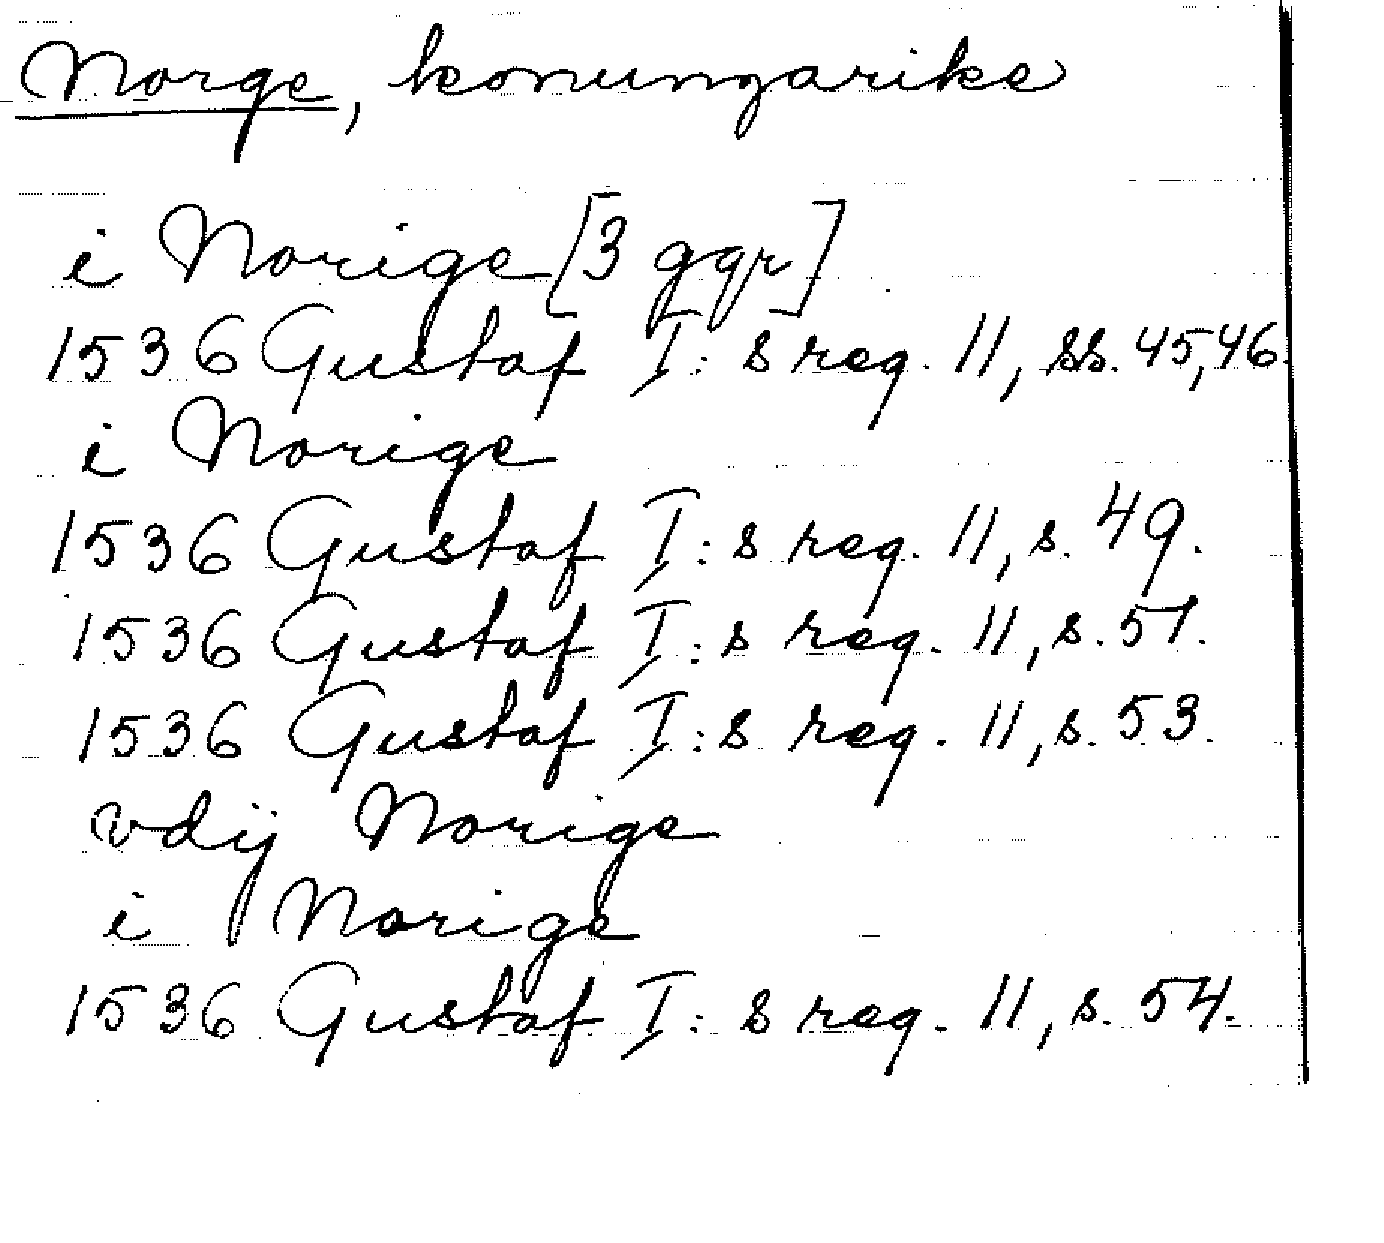 Norge, konungarike
i Norige [3 ggr]
1536 Gustaf I: s reg. 11, ss. 45, 46.
i Norige
1536 Gustaf I: s reg. 11, s. 49.
1536 Gustaf I: s reg. 11, s. 51.
1536 Gustaf I: s reg. 11, s. 53.
vdij Norige
i Norige
1536 Gustaf I: s reg. 11, s. 54.